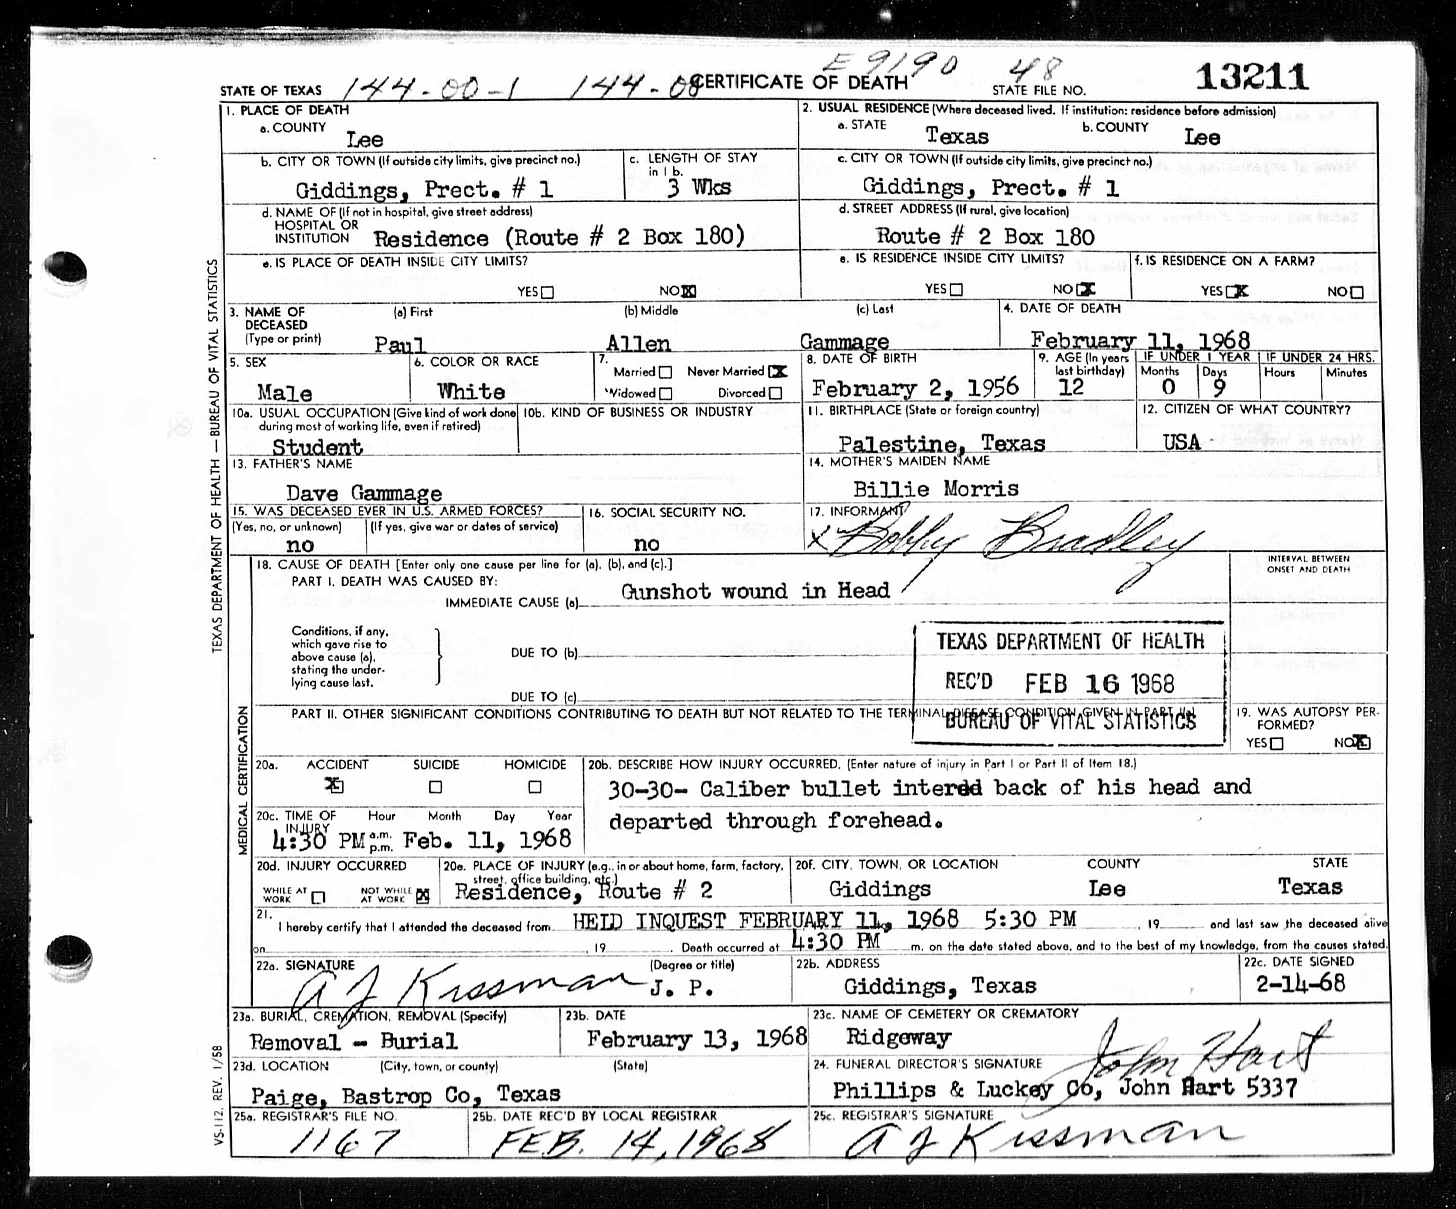 E 9190 48
STATE OF TEXAS 144-00-1 144-08 CERTIFICATE OF DEATH STATE FILE NO. 13211
1. PLACE OF DEATH
a. COUNTY
Lee
2. USUAL RESIDENCE (Where deceased lived. If institution: residence before admission)
a. STATE Texas b. COUNTY Lee
b. CITY OR TOWN (If outside city limits, give precinct no.)
Giddings, Prect. # 1
c. LENGTH OF STAY in 1 b.
3 Wks
c. CITY OR TOWN (If outside city limits, give precinct no.)
Giddings, Prect. # 1
d. NAME OF (If not in hospital, give street address)
HOSPITAL OR
INSTITUTION Residence (Route # 2 Box 180)
d. STREET ADDRESS (If rural, give location)
Route # 2 Box 180
e. IS PLACE OF DEATH INSIDE CITY LIMITS?
YES NO X
e. IS RESIDENCE INSIDE CITY LIMITS?
YES NO X
f. IS RESIDENCE ON A FARM?
YES X NO
3. NAME OF DECEASED (Type or print)
(a) First (b) Middle (c) Last
Paul Allen Gammage
4. DATE OF DEATH
February 11, 1968
5. SEX
Male
6. COLOR OR RACE
White
7. Married Never Married X
Widowed Divorced
8. DATE OF BIRTH
February 2, 1956
9. AGE (In years last birthday)
12
IF UNDER 1 YEAR
Months Days
0 9
IF UNDER 24 HRS.
Hours Minutes
10a. USUAL OCCUPATION (Give kind of work done during most of working life, even if retired)
Student
10b. KIND OF BUSINESS OR INDUSTRY
11. BIRTHPLACE (State or foreign country)
Palestine, Texas
12. CITIZEN OF WHAT COUNTRY?
USA
13. FATHER'S NAME
Dave Gammage
14. MOTHER'S MAIDEN NAME
Billie Morris
15. WAS DECEASED EVER IN U.S. ARMED FORCES?
(Yes, no, or unknown) (If yes, give war or dates of service)
no
16. SOCIAL SECURITY NO.
no
17. INFORMANT
x Bobby Bradley
18. CAUSE OF DEATH [Enter only one cause per line for (a), (b), and (c).]
INTERVAL BETWEEN ONSET AND DEATH
PART I. DEATH WAS CAUSED BY:
IMMEDIATE CAUSE (a) Gunshot wound in Head
Conditions, if any,
which gave rise to
above cause (a),
stating the under-
lying cause last.
DUE TO (b)
DUE TO (c)
TEXAS DEPARTMENT OF HEALTH
REC'D FEB 16 1968
BUREAU OF VITAL STATISTICS
PART II. OTHER SIGNIFICANT CONDITIONS CONTRIBUTING TO DEATH BUT NOT RELATED TO THE TERMINAL DISEASE CONDITION GIVEN IN PART I
19. WAS AUTOPSY PER-
FORMED?
YES NO X
20a. ACCIDENT SUICIDE HOMICIDE
X
20b. DESCRIBE HOW INJURY OCCURRED. (Enter nature of injury in Part I or Part II of Item 18.)
30-30- Caliber bullet intered back of his head and
departed through forehead.
20c. TIME OF INJURY Hour Month Day Year
4:30 PM a.m. p.m. Feb. 11, 1968
20d. INJURY OCCURRED
WHILE AT WORK NOT WHILE AT WORK X
20e. PLACE OF INJURY (e.g., in or about home, farm, factory, street, office building, etc.)
Residence, Route # 2
20f. CITY, TOWN, OR LOCATION COUNTY STATE
Giddings Lee Texas
21. I hereby certify that I attended the deceased from HELD INQUEST FEBRUARY 11, 1968 5:30 PM , 19 and last saw the deceased alive
on , 19 . Death occurred at 4:30 PM m. on the date stated above, and to the best of my knowledge, from the causes stated.
22a. SIGNATURE (Degree or title)
A J Kissman J. P.
22b. ADDRESS
Giddings, Texas
22c. DATE SIGNED
2-14-68
23a. BURIAL, CREMATION, REMOVAL (Specify)
Removal - Burial
23b. DATE
February 13, 1968
23c. NAME OF CEMETERY OR CREMATORY
Ridgeway
23d. LOCATION (City, town, or county) (State)
Paige, Bastrop Co, Texas
24. FUNERAL DIRECTOR'S SIGNATURE
John Hart
Phillips & Luckey Co, John Hart 5337
25a. REGISTRAR'S FILE NO.
1167
25b. DATE REC'D BY LOCAL REGISTRAR
FEB. 14, 1968
25c. REGISTRAR'S SIGNATURE
A J Kissman
TEXAS DEPARTMENT OF HEALTH — BUREAU OF VITAL STATISTICS
MEDICAL CERTIFICATION
VS-112. REV. 1/58